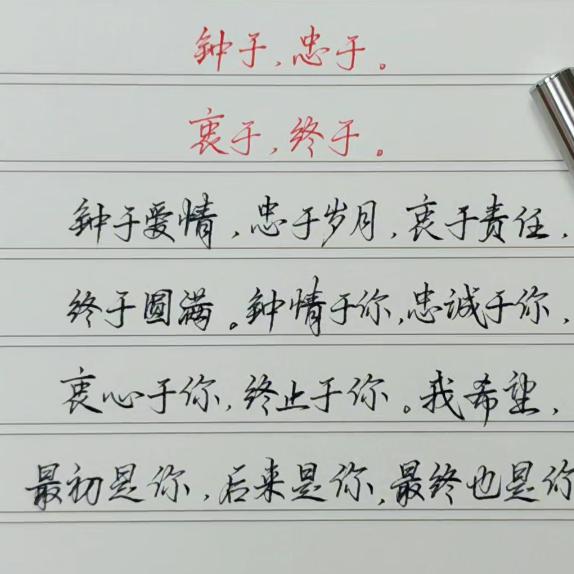 钟于，忠于。
衷于，终于。
钟于爱情，忠于岁月，衷于责任，
终于圆满。钟情于你，忠诚于你，
衷心于你，终止于你。我希望，
最初是你，后来是你，最终也是你